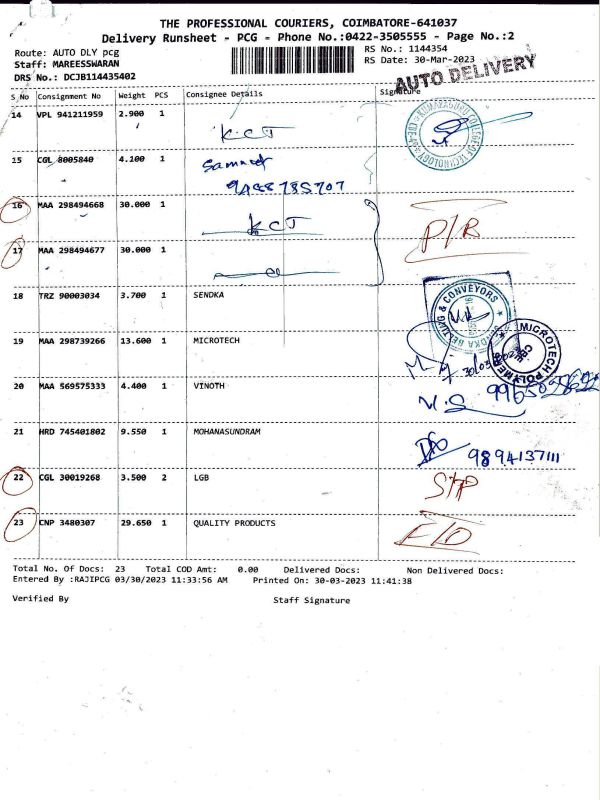 THE PROFESSIONAL COURIERS, COIMBATORE-641037
Delivery Runsheet - PCG - Phone No.:0422-3505555 - Page No.:2
Route: AUTO DLY pcg
RS No.: 1144354
Staff: MAREESSWARAN
RS Date: 30-Mar-2023
DRS No.: DCJB114435402
AUTO DELIVERY
S No Consignment No Weight PCS Consignee Details Signature
14 VPL 941211959 2.900 1 KCT
KUMARAGURU COLLEGE OF TECHNOLOGY
15 CGL 8005840 4.100 1 Sameer
16 MAA 298494668 30.000 1 KCT
P/B
17 MAA 298494677 30.000 1
18 TRZ 90003034 3.700 1 SENDKA
BELTING & CONVEYORS
19 MAA 298739266 13.600 1 MICROTECH
MICROTECH POLYMERS
CBE
20 MAA 569575333 4.400 1 VINOTH
V.S
21 HRD 745401802 9.550 1 MOHANASUNDRAM
9894137111
22 CGL 30019268 3.500 2 LGB
23 CNP 3480307 29.650 1 QUALITY PRODUCTS
Total No. Of Docs: 23 Total COD Amt: 0.00 Delivered Docs: Non Delivered Docs:
Entered By :RAJIPCG 03/30/2023 11:33:56 AM Printed On: 30-03-2023 11:41:38
Verified By Staff Signature